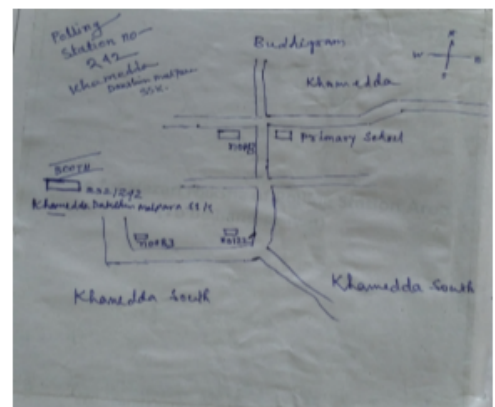 Polling
Station no-
242
Khamedda
Dakshin malpara
SSK.
Buddigram
Khamedda
N
W
Primary School
BOOTH
242
Khamedda Dakshin malpara SSK
Khamedda South
Khamedda South